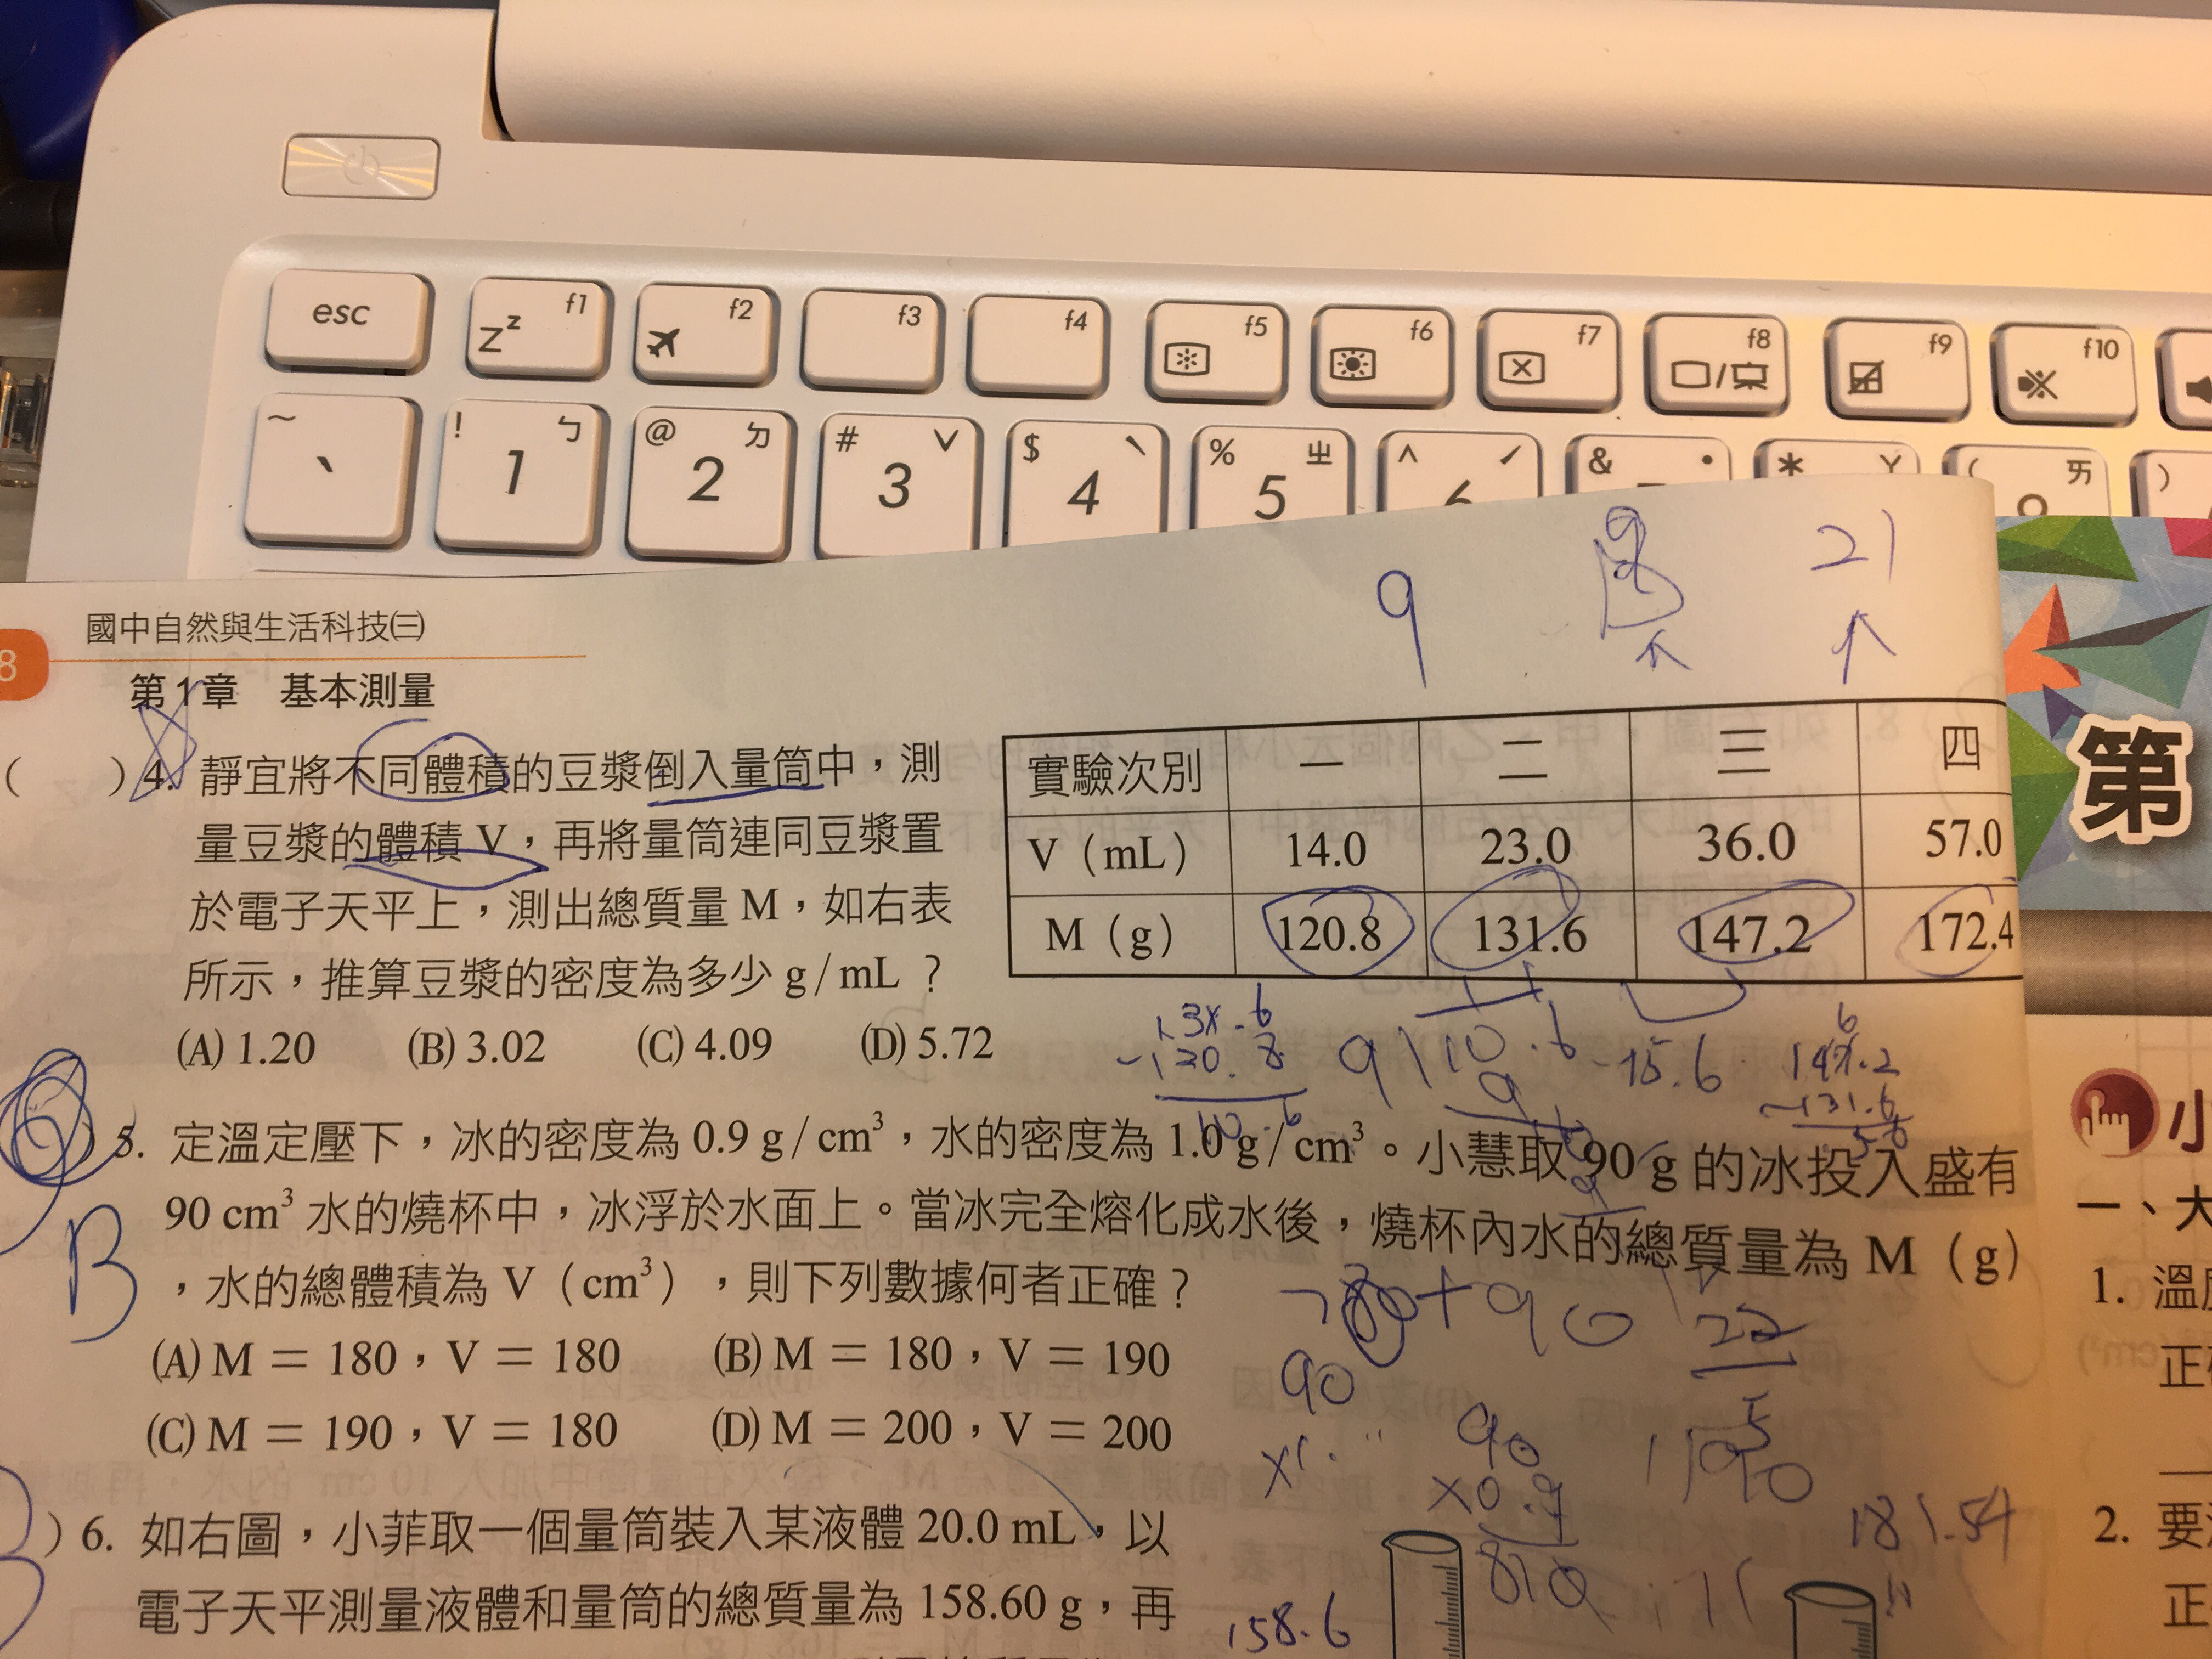 esc
f1
f2
f3
f4
f5
f6
f7
f8
f9
f10
Zz
~ `
! ㄅ 1
@ ㄉ 2
# ˇ 3
$ ˋ 4
% ㄓ 5
^ ˊ 6
& ˙
* ㄚ
( ㄞ
)
9
21
8
國中自然與生活科技㈢
第1章 基本測量
( )4. 靜宜將不同體積的豆漿倒入量筒中，測
量豆漿的體積 V，再將量筒連同豆漿置
於電子天平上，測出總質量 M，如右表
所示，推算豆漿的密度為多少 g/mL？
(A) 1.20 (B) 3.02 (C) 4.09 (D) 5.72
實驗次別 一 二 三 四
V（mL） 14.0 23.0 36.0 57.0
M（g） 120.8 131.6 147.2 172.4
15.6
147.2
131.6
)5. 定溫定壓下，冰的密度為 0.9 g/cm³，水的密度為 1.0 g/cm³。小慧取 90 g 的冰投入盛有
90 cm³ 水的燒杯中，冰浮於水面上。當冰完全熔化成水後，燒杯內水的總質量為 M（g）
，水的總體積為 V（cm³），則下列數據何者正確？
B
(A) M = 180，V = 180 (B) M = 180，V = 190
(C) M = 190，V = 180 (D) M = 200，V = 200
90
90
×0.9
810
181.54
)6. 如右圖，小菲取一個量筒裝入某液體 20.0 mL，以
電子天平測量液體和量筒的總質量為 158.60 g，再
158.6
第
小
一、大
1. 溫
正
2. 要
正